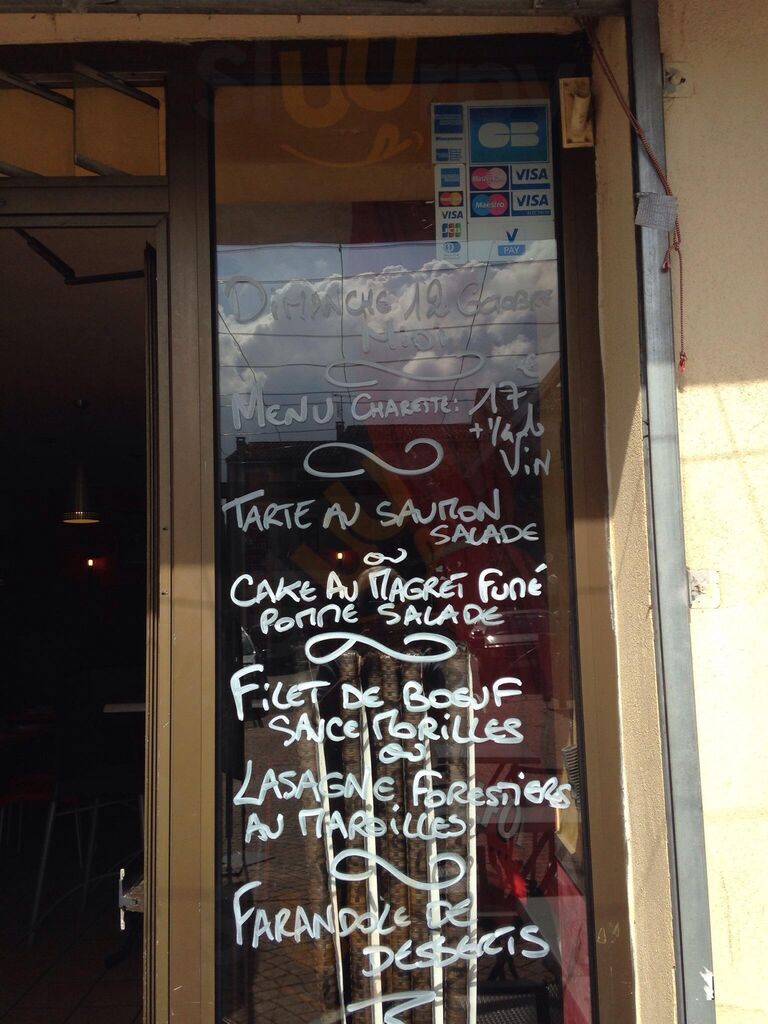 CB
VISA
MasterCard
VISA
Maestro
VISA
JCB
V PAY
DIMANCHE 12 OCTOBRE
MIDI
MENU CHARETTE: 17 €
+ 1/4 L
VIN
TARTE AU SAUMON
SALADE
OU
CAKE AU MAGRET FUMÉ
POMME SALADE
FILET DE BOEUF
SAUCE MORILLES
OU
LASAGNE FORESTIERS
AU MAROILLES
FARANDOLE DE
DESSERTS